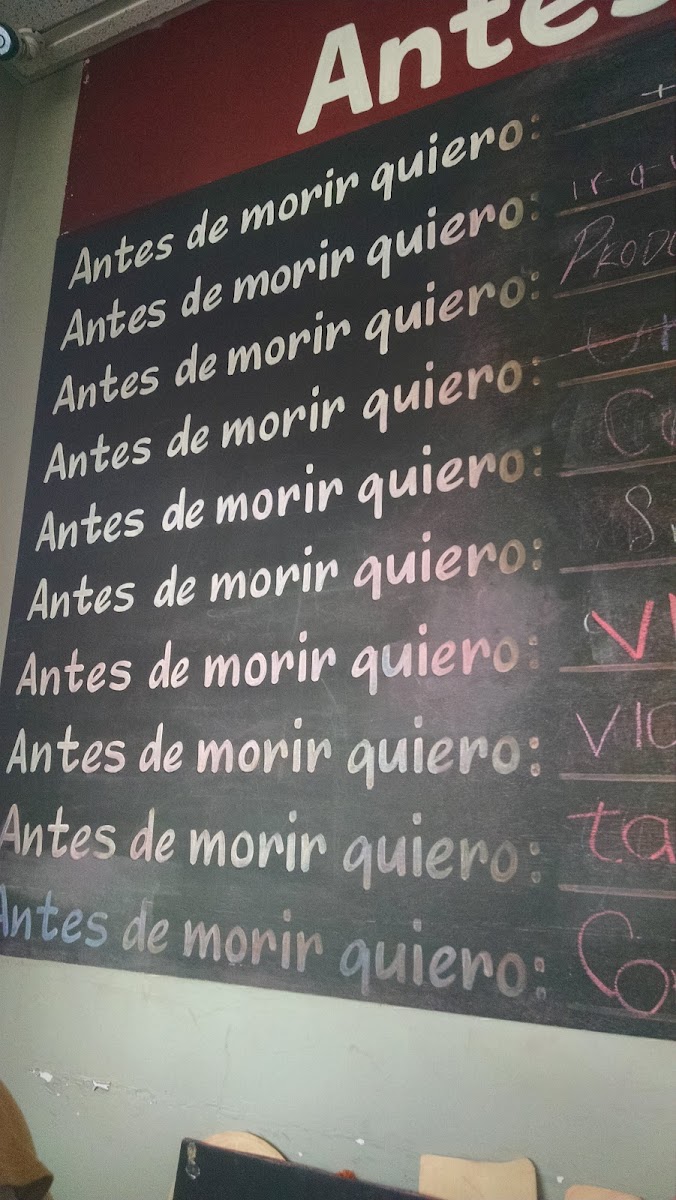 Antes
Antes de morir quiero:
Antes de morir quiero:
Antes de morir quiero:
Antes de morir quiero:
Antes de morir quiero:
Antes de morir quiero:
Antes de morir quiero:
Antes de morir quiero:
Antes de morir quiero:
Antes de morir quiero: